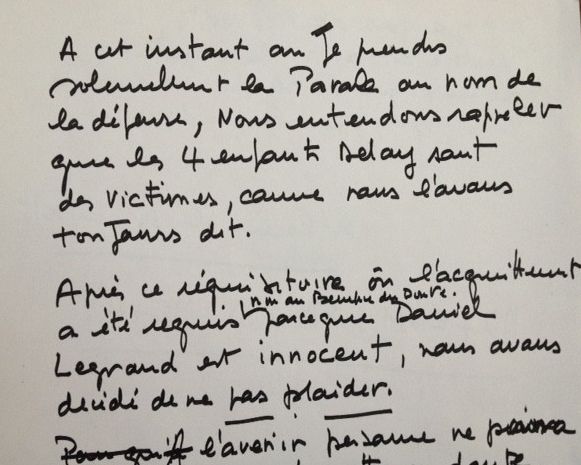 A cet instant où Je prends
solennellement la Parole au nom de
la défense, Nous entendons rappeler
que les 4 enfants Delay sont
des victimes, comme nous l'avons
toujours dit.
Après ce réquisitoire où l'acquittement
non au Bénéfice du Doute.
a été requis parceque Daniel
Legrand est innocent, nous avons
décidé de ne pas plaider.
l'avenir personne ne pourra